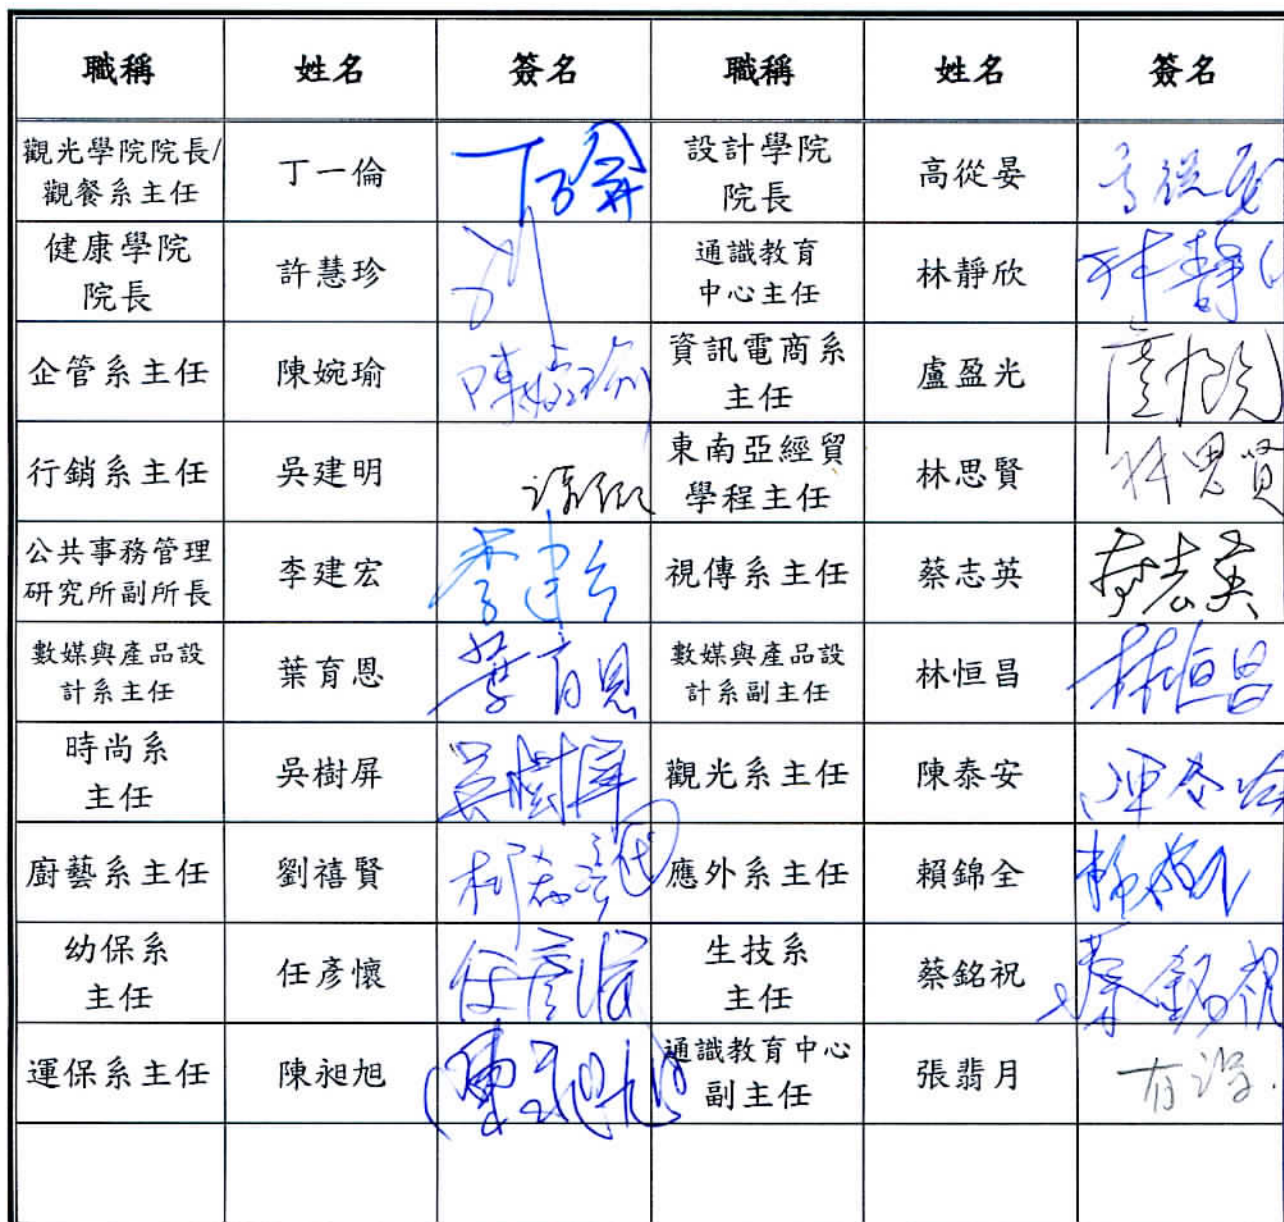 職稱 姓名 簽名 職稱 姓名 簽名
觀光學院院長/
觀餐系主任 丁一倫 設計學院
院長 高從晏 高從晏
健康學院
院長 許慧珍 通識教育
中心主任 林靜欣 林靜
企管系主任 陳婉瑜 陳婉瑜 資訊電商系
主任 盧盈光
行銷系主任 吳建明 東南亞經貿
學程主任 林思賢 林思賢
公共事務管理
研究所副所長 李建宏 李建宏 視傳系主任 蔡志英 蔡志英
數媒與產品設
計系主任 葉育恩 葉育恩 數媒與產品設
計系副主任 林恒昌 林恒昌
時尚系
主任 吳樹屏 吳樹屏 觀光系主任 陳泰安 陳泰安
廚藝系主任 劉禧賢 代 應外系主任 賴錦全
幼保系
主任 任彥懷 任彥懷 生技系
主任 蔡銘祝 蔡銘祝
運保系主任 陳昶旭 陳昶旭 通識教育中心
副主任 張翡月 有課